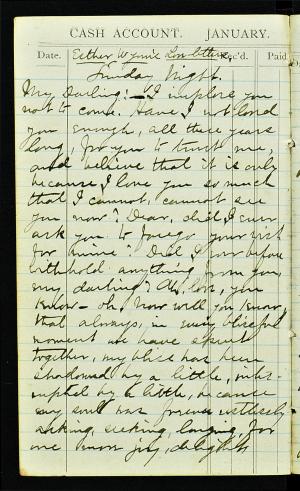 CASH ACCOUNT. JANUARY.
Date. Rec'd. Paid
Sunday Night.
My Darling! I implore you
not to come. Have I not loved
you enough, all these years
long, for you to trust me,
and believe that it is only
because I love you so much
that I cannot, cannot see
you now? Dear, did I ever
ask you to forego your
for mine? Did I ever before
withhold anything from you,
my darling? Ah, love, you
know – oh, how well you know,
that always, in every blissful
moment we have spent
together, my bliss has been
shadowed by a little, inter-
rupted by a little, because
my soul was forever restlessly
asking, seeking, longing for
one more joy, delight